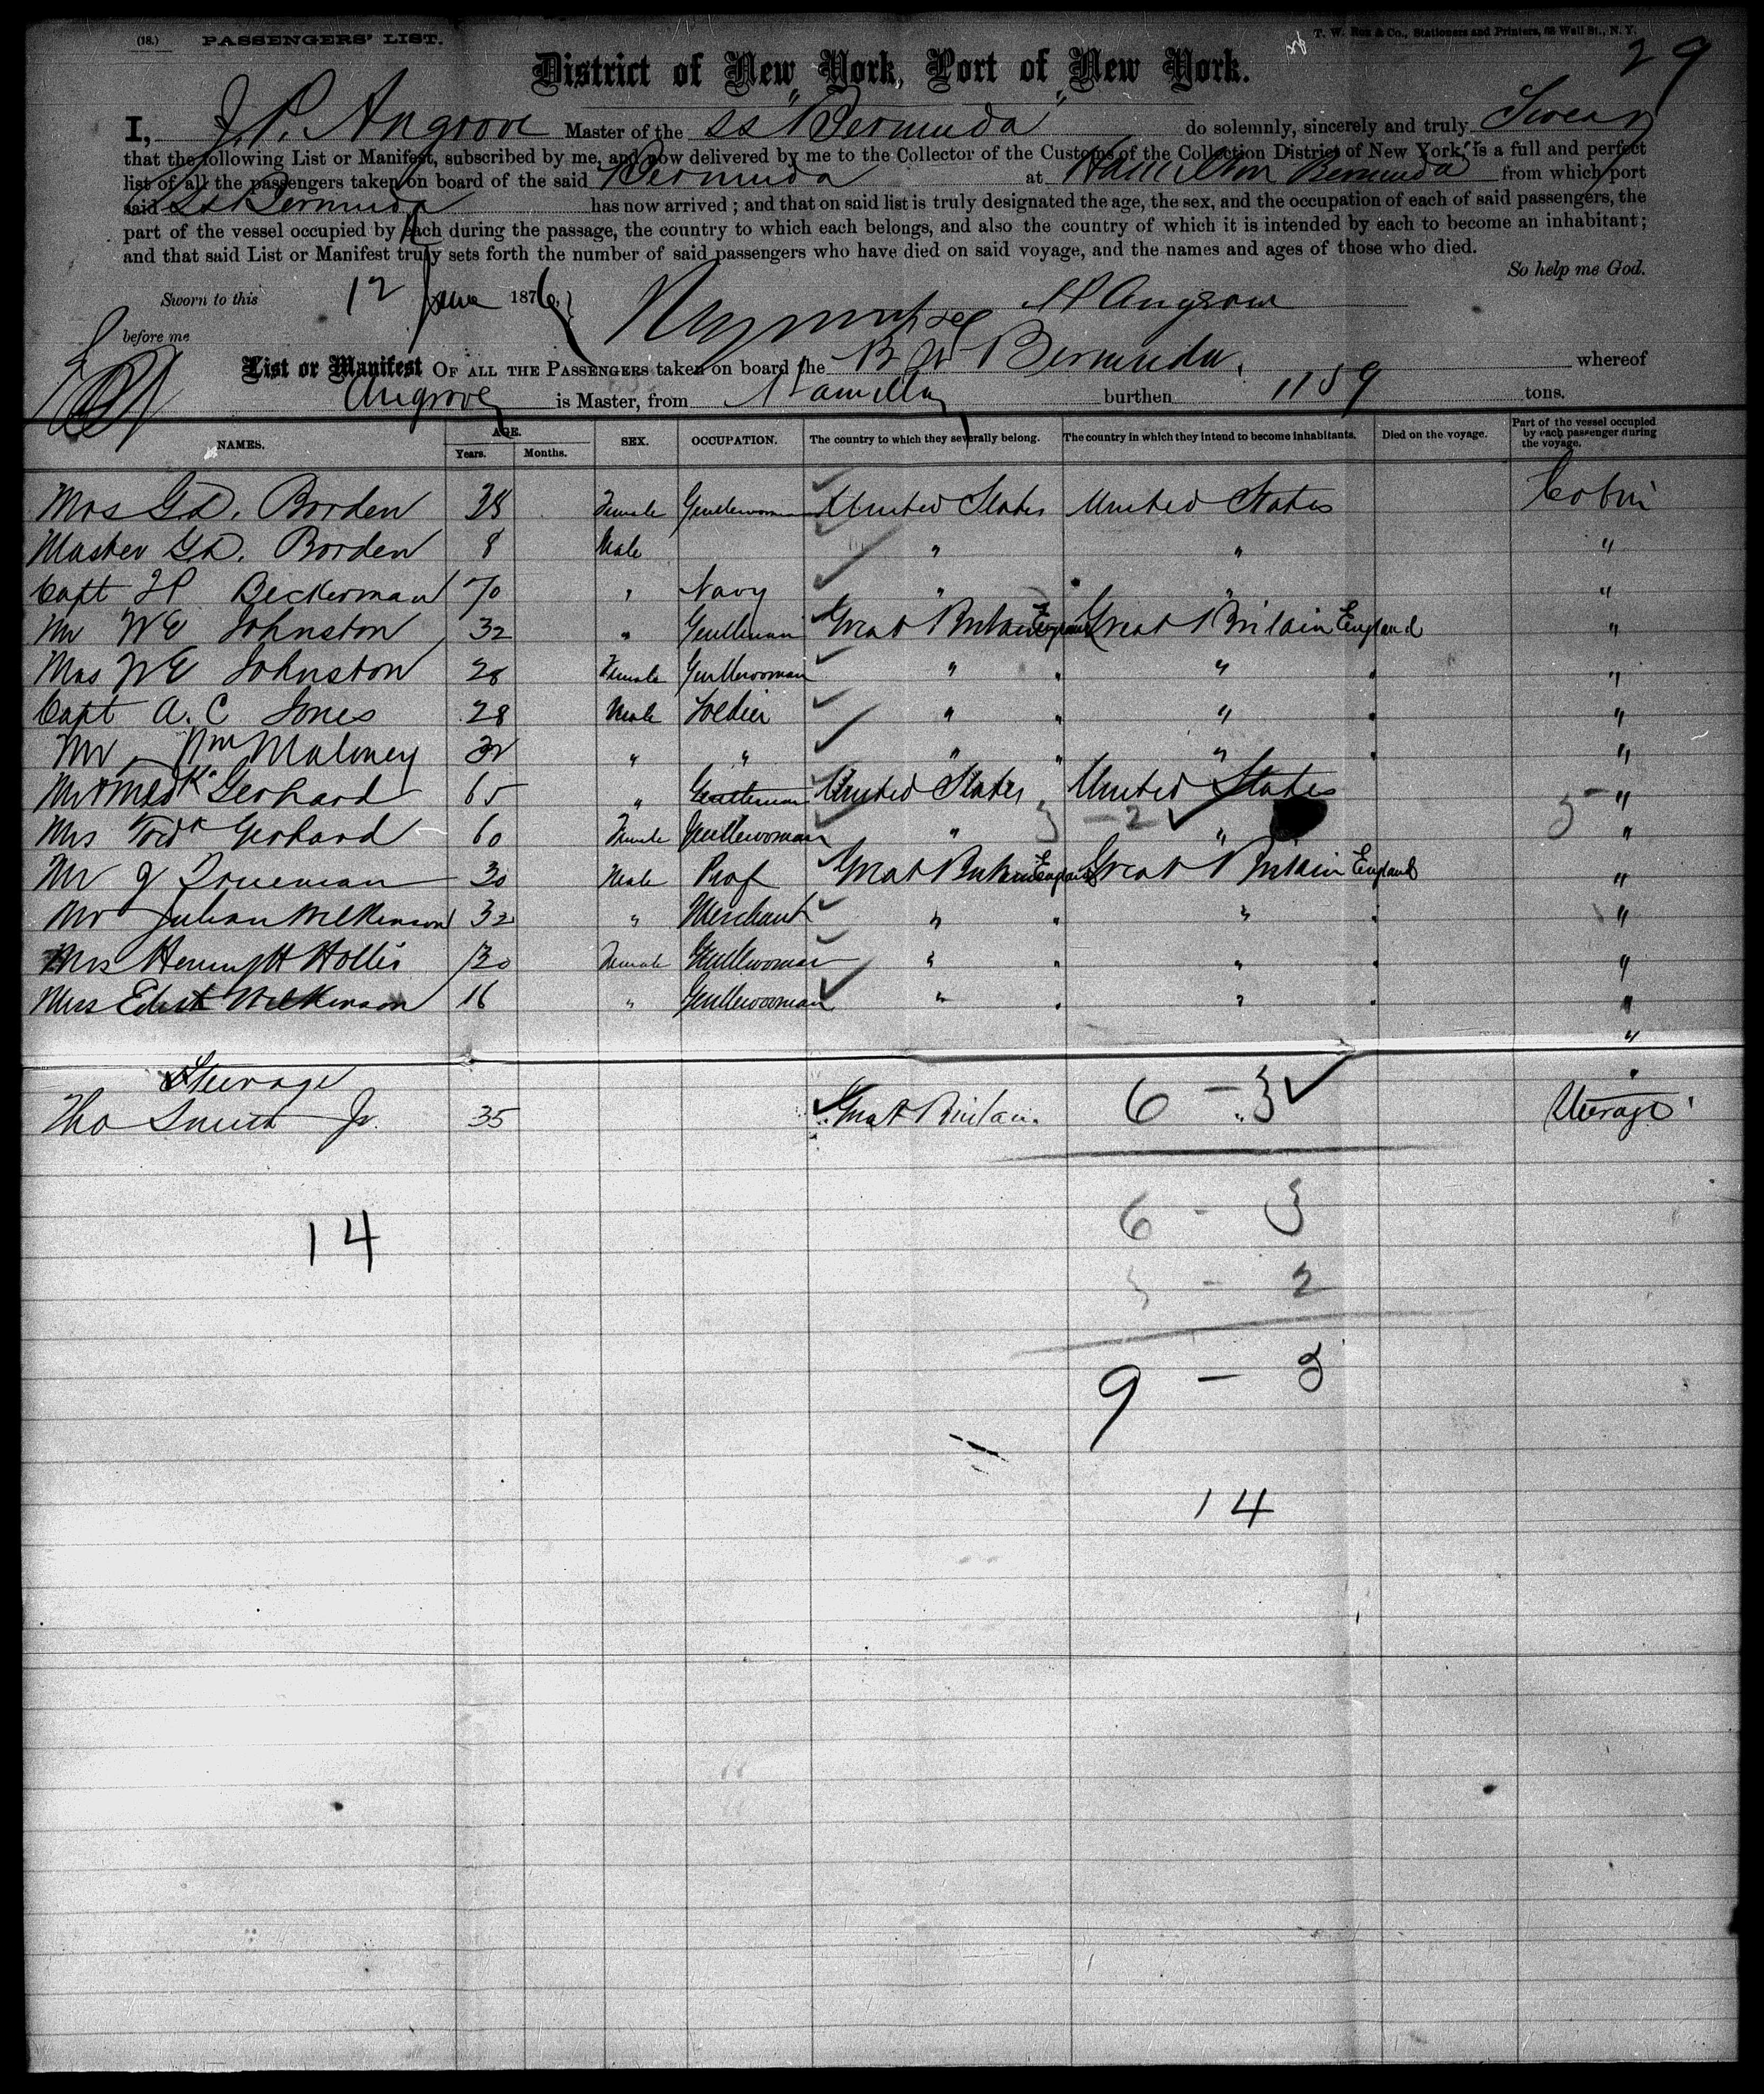 (18.) PASSENGERS' LIST.
T. W. Rox & Co., Stationers and Printers, 68 Wall St., N. Y.
29
District of New York, Port of New York.
I, J. P. Angrove Master of the SS "Bermuda" do solemnly, sincerely and truly Swear
that the following List or Manifest, subscribed by me, and now delivered by me to the Collector of the Customs of the Collection District of New York, is a full and perfect
list of all the passengers taken on board of the said Bermuda at Hamilton Bermuda from which port
said SS Bermuda has now arrived; and that on said list is truly designated the age, the sex, and the occupation of each of said passengers, the
part of the vessel occupied by each during the passage, the country to which each belongs, and also the country of which it is intended by each to become an inhabitant;
and that said List or Manifest truly sets forth the number of said passengers who have died on said voyage, and the names and ages of those who died.
So help me God.
Sworn to this 12 June 1876 J P Angrove
before me
List or Manifest OF ALL THE PASSENGERS taken on board the Bermuda. whereof
Angrove is Master, from Hamilton burthen 1159 tons.
NAMES. AGE. Years. Months. SEX. OCCUPATION. The country to which they severally belong. The country in which they intend to become inhabitants. Died on the voyage. Part of the vessel occupied by each passenger during the voyage.
Mrs G.D. Borden 38 Female Gentlewoman United States United States Cabin
Master G.D. Borden 8 Male " " "
Capt Beckerman 70 " Navy " " "
Mr W E Johnston 32 " Gentleman Great Britain England Great Britain England "
Mrs W E Johnston 28 Female Gentlewoman " " " " "
Capt A. C Jones 28 Male Soldier " " " " "
Mr Wm Maloney 32 " " " " " " "
Gerhard 65 " Gentleman United States United States "
3 - 2 5
Mrs Fredk Gerhard 60 Female Gentlewoman " " "
Mr J Trueman 30 Male Prof Great Britain England Great Britain England "
Mr Julian Wilkinson 32 " Merchant " " " " "
Mrs Henry H Hollis 30 Female Gentlewoman " " " " "
Miss Edith Wilkinson 16 " Gentlewoman " " " " "
"
Steerage
Tho Smith Jr. 35 Great Britain. 6 - 3 Steerage
14
6 - 3
3 - 2
9 -
14